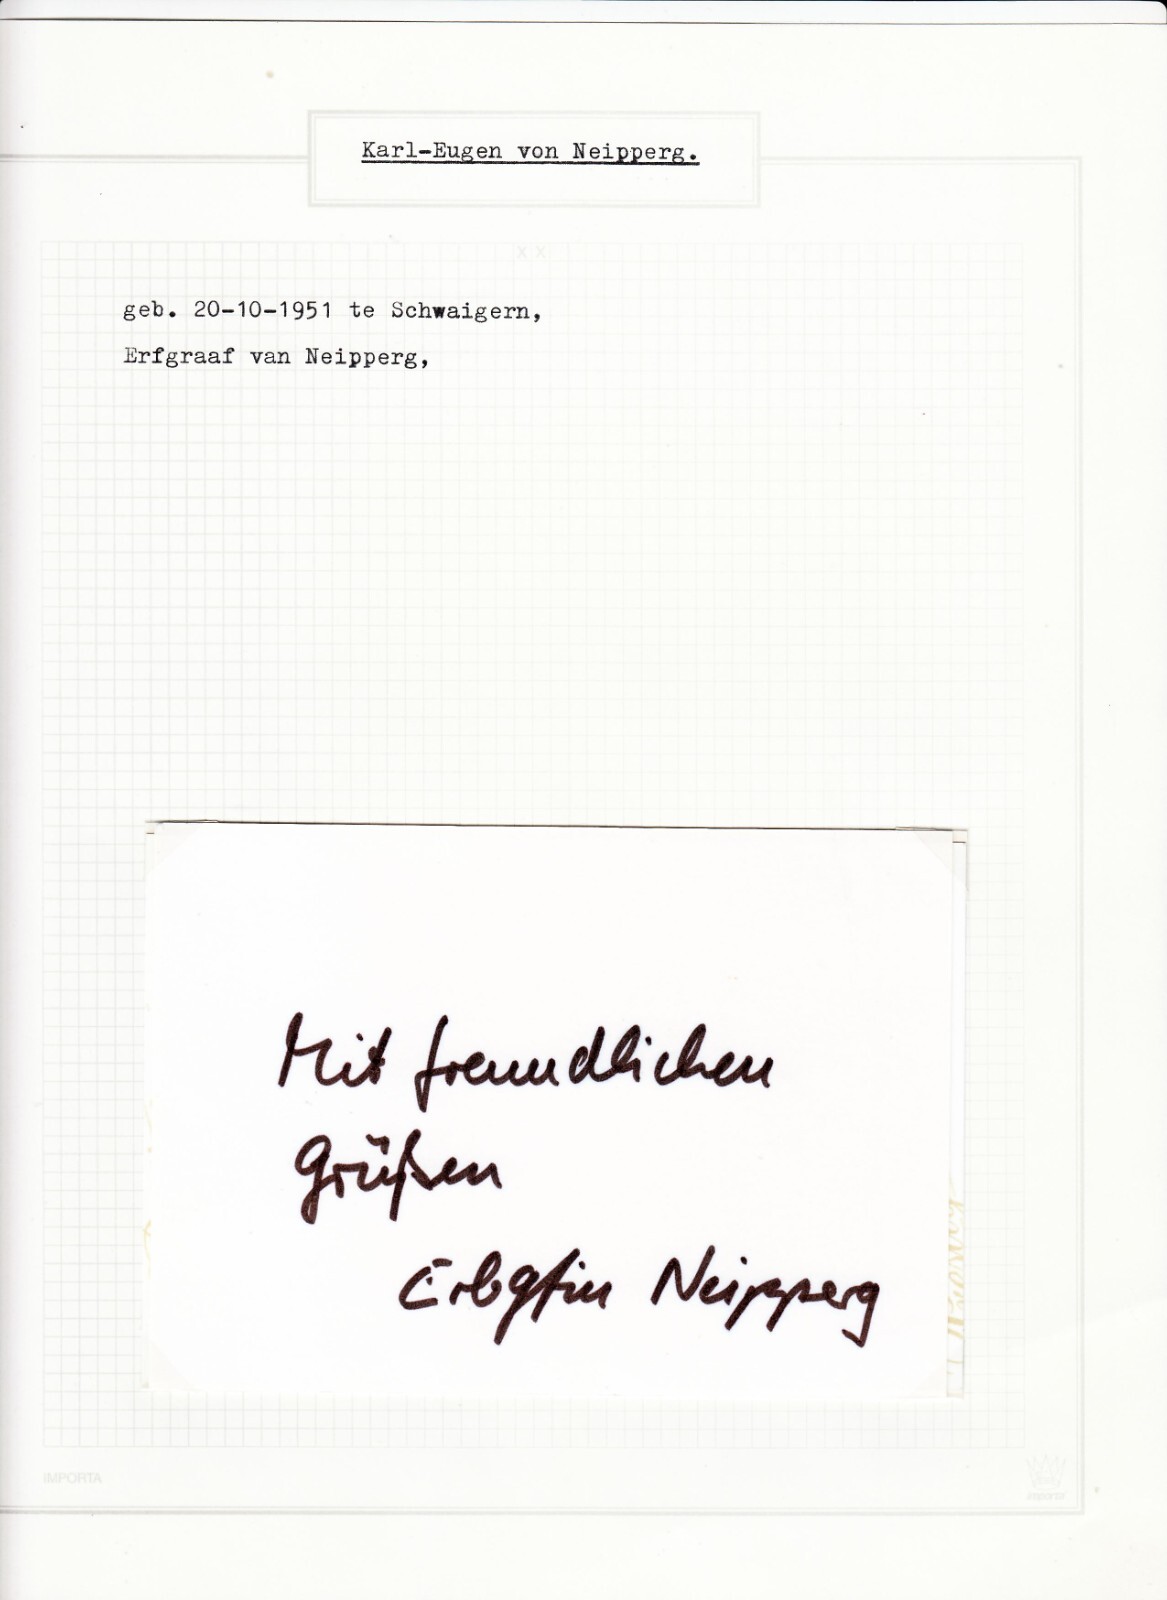 Karl-Eugen von Neipperg.
x x
geb. 20-10-1951 te Schwaigern,
Erfgraaf van Neipperg,
Mit freundlichen
Grüßen
Erbgfin Neipperg
IMPORTA
importa